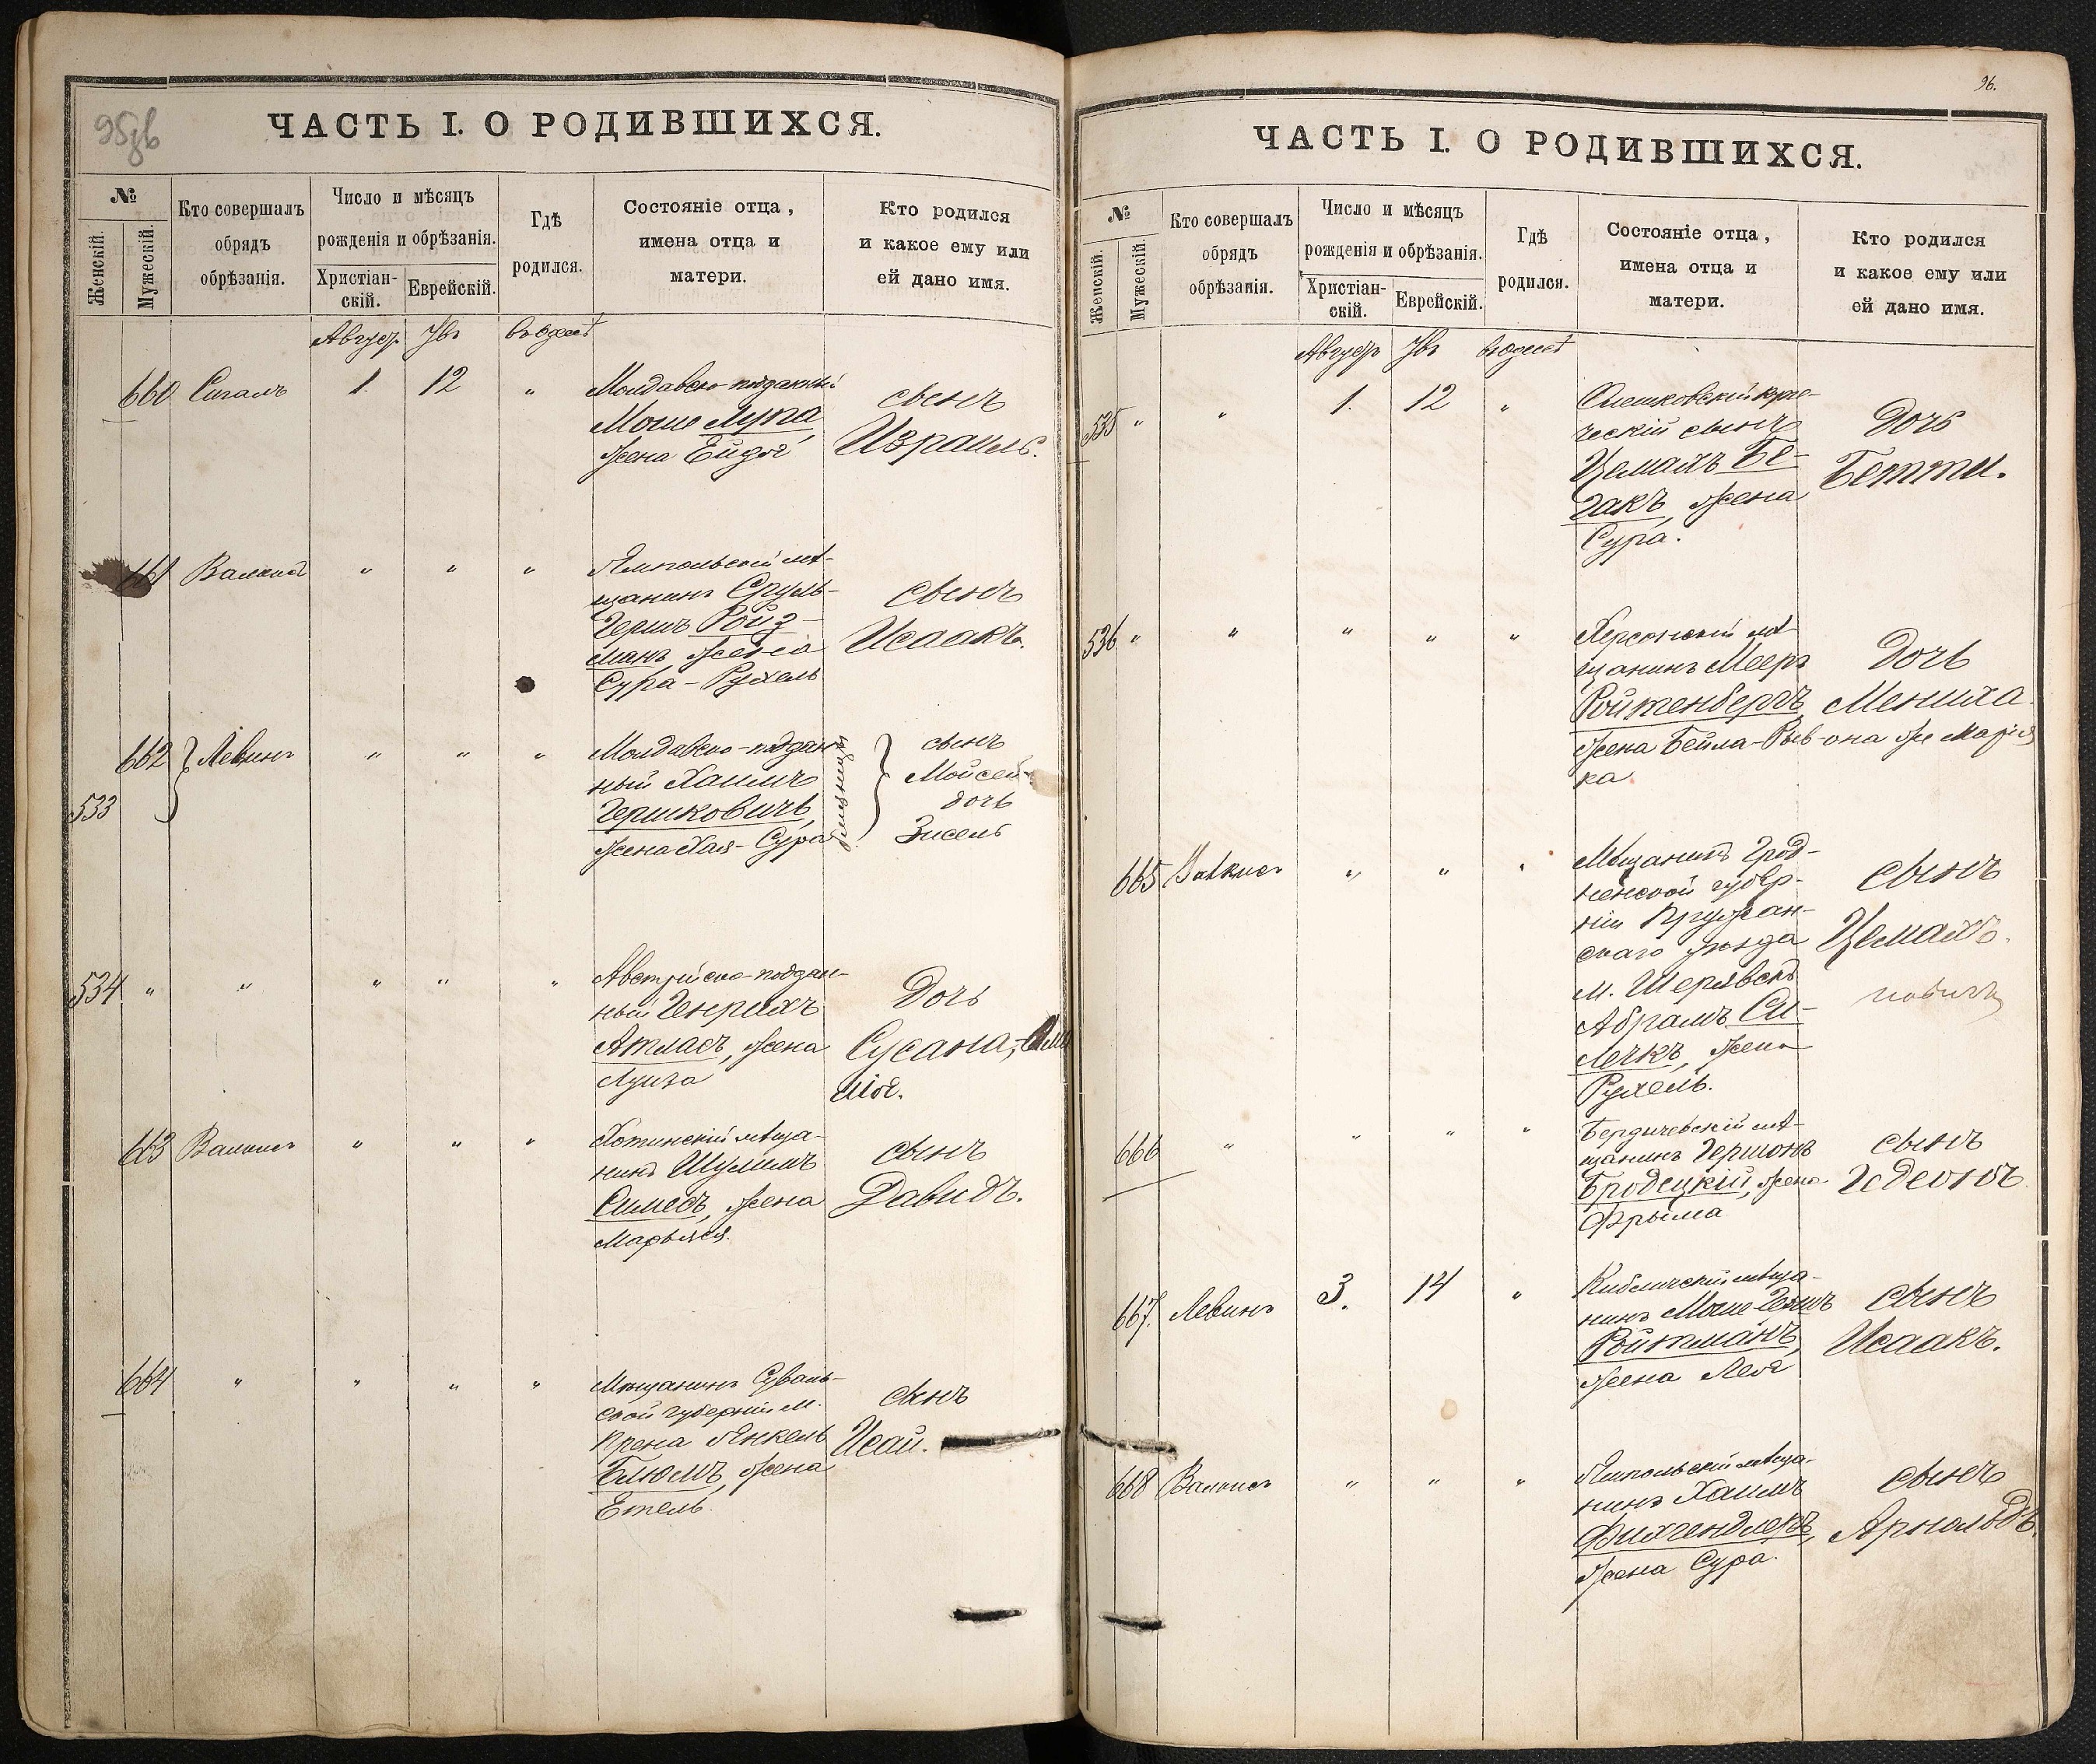 95
ЧАСТЬ I. О РОДИВШИХСЯ.
№
Женскій.
Мужескій.
Кто совершалъ
обрядъ
обрѣзанія.
Число и мѣсяцъ
рожденія и обрѣзанія.
Христіан-
скій.
Еврейскій.
Гдѣ
родился.
Состояніе отца,
имена отца и
матери.
Кто родился
и какое ему или
ей дано имя.
660 Сигалъ 1. 12 "
Молдавско-подданный
Моше Лупа
жена Ейдля
сынъ
Израиль.
661 " " "
Ямпольскій мѣ-
щанинъ Сруль-
Гершъ Ройз-
манъ, жена
Сура-Рухель
сынъ
Исаакъ.
662 Левинъ " " "
533
Молдавско-поддан-
ный Хаимъ
Гершковичъ,
жена Хая-Сура
близнецы
сынъ
Мойсей
дочь
Зисель
534 " " " " "
Австрійско-поддан-
ный Генрихъ
Атласъ, жена
Луиза
Дочь
Сусана,
663 " " "
Хотинскій мѣща-
нинъ Шулимъ
жена
Марьяся.
сынъ
Давидъ.
664 " " " "
Мѣщанинъ Суваль-
ской губерніи м.
Прена Янкель
Блюмъ, жена
Етель.
сынъ
Исай.
96.
ЧАСТЬ I. О РОДИВШИХСЯ.
№
Женскій.
Мужескій.
Кто совершалъ
обрядъ
обрѣзанія.
Число и мѣсяцъ
рожденія и обрѣзанія.
Христіан-
скій.
Еврейскій.
Гдѣ
родился.
Состояніе отца,
имена отца и
матери.
Кто родился
и какое ему или
ей дано имя.
535 " " 1. 12 "
Олешковскій купе-
ческій сынъ
Цемахъ Бе-
жена
Сура.
Дочь
Бетти.
536 " " " " "
Херсонскій мѣ-
щанинъ Мееръ
Ройтенбергъ
жена Бейла-Рыв-
ка
Дочь
Мениха
она же Марія
665 " " "
Мѣщанинъ Грод-
ненской губер-
ніи Пружан-
скаго уѣзда
м. Шерявскъ
Абрамъ Си-
жена
Рухель.
сынъ
Цемахъ.
666 " " " "
Бердичевскій мѣ-
щанинъ Гершонъ
Бродецкій, жена
Фрыма
сынъ
Гедеонъ
667. Левинъ 3. 14 "
Кибличскій мѣща-
нинъ Моше-Гершъ
Ройтманъ,
жена Лея
сынъ
Исаакъ.
668 " " "
Ямпольскій мѣща-
нинъ Хаимъ
Фихгендлеръ,
жена Сура.
сынъ
Арнольдъ.